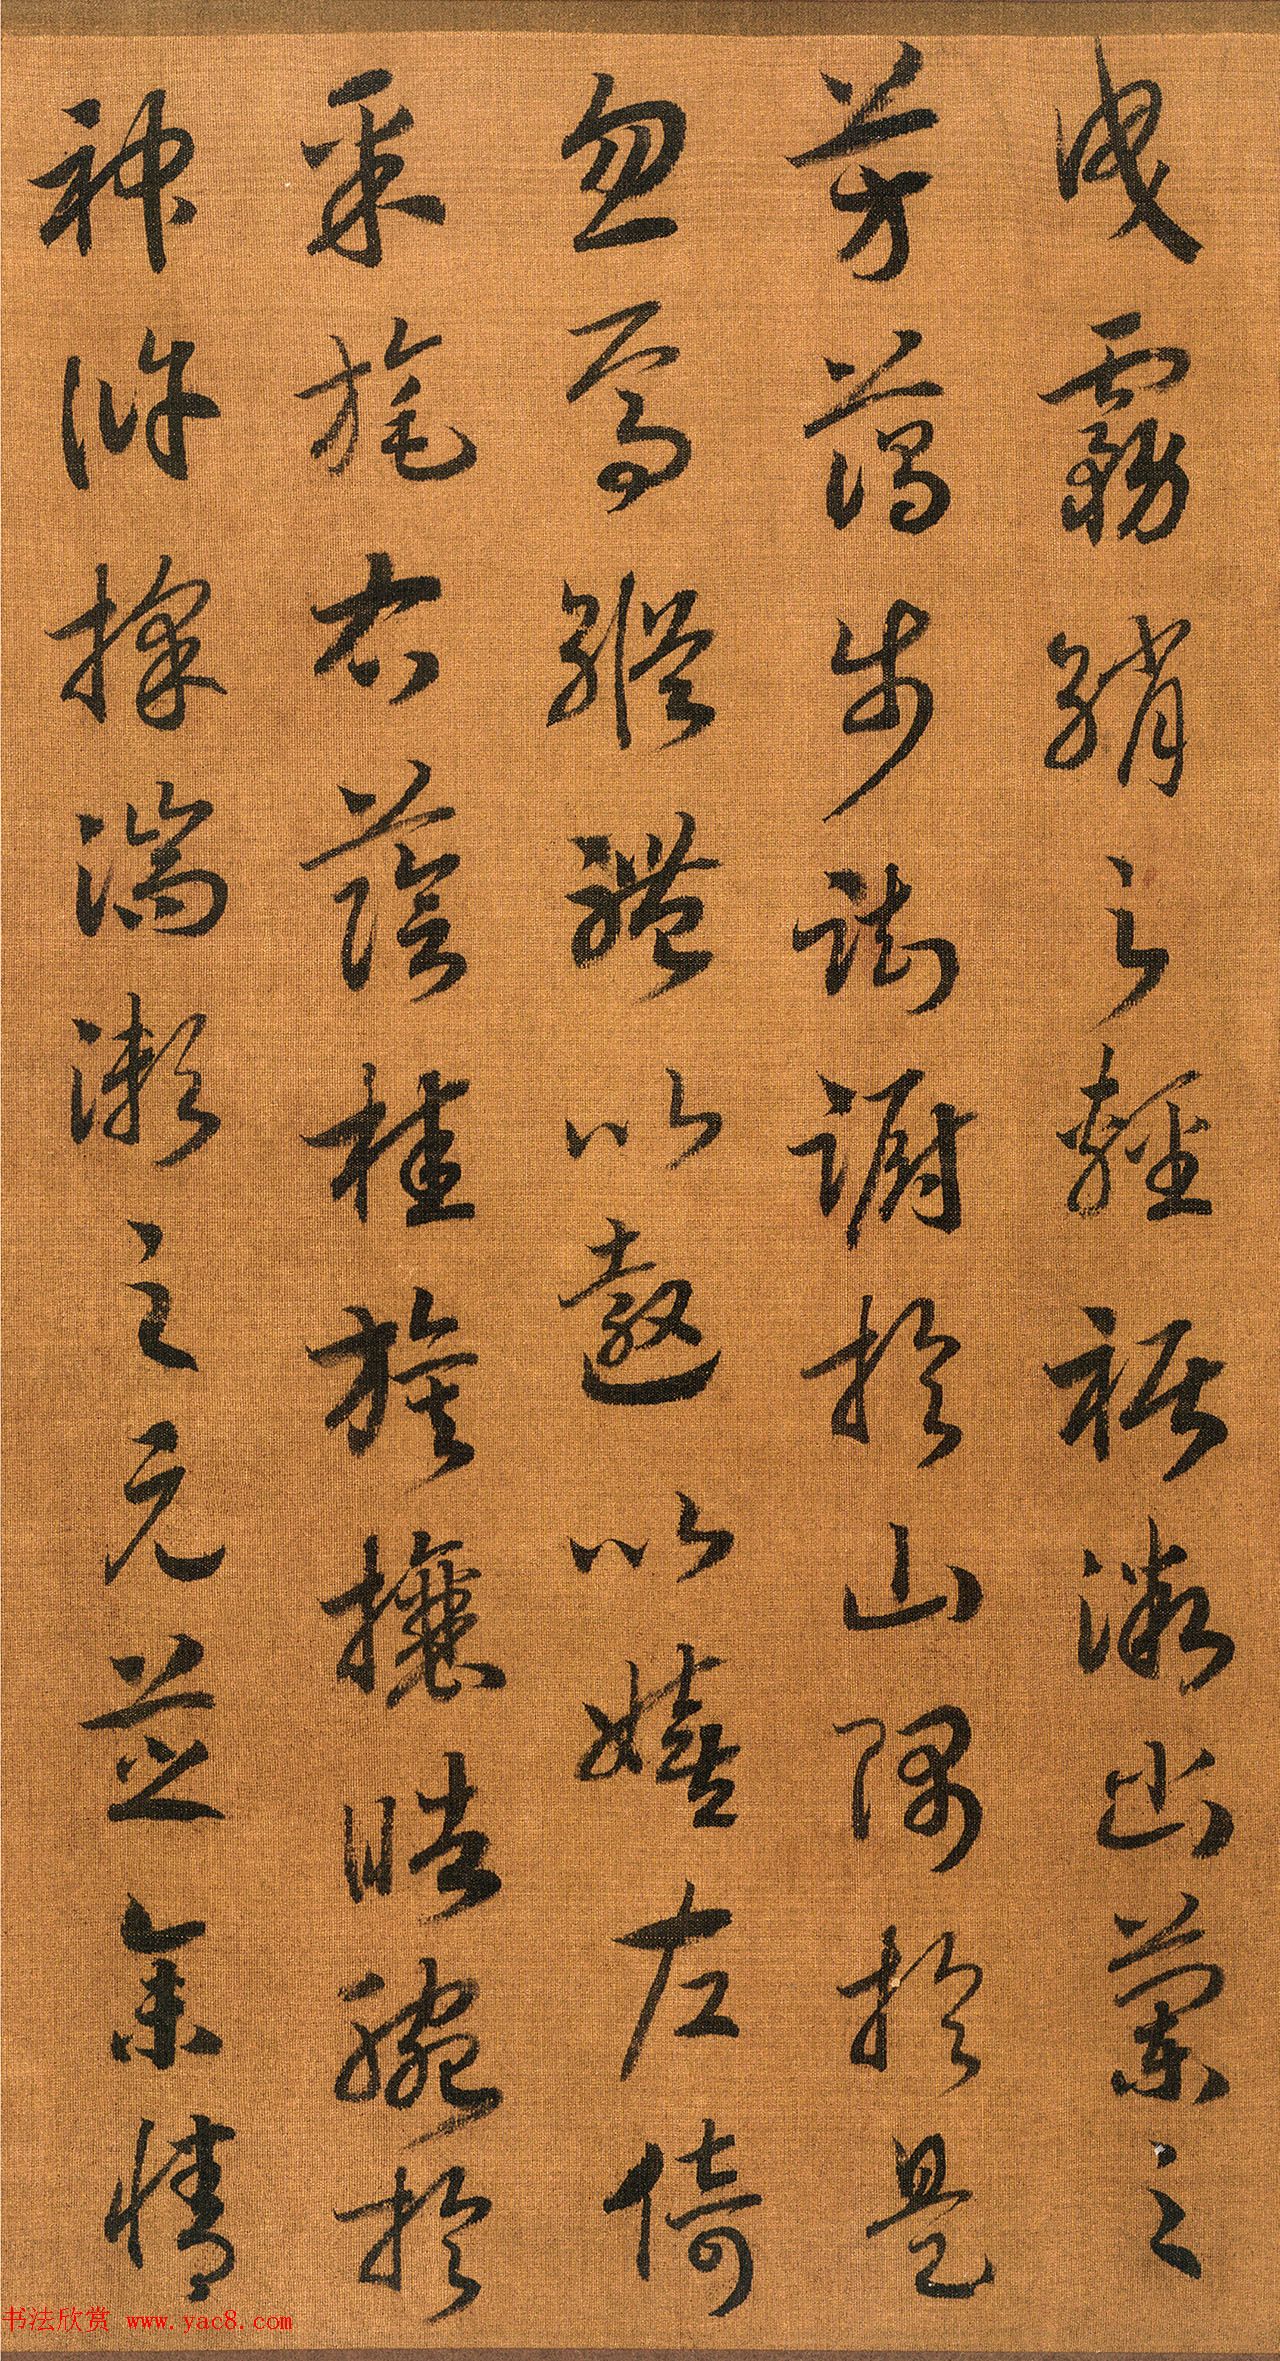 曳霧綃之輕裾幽蘭之
芳藹步踟躕於山隅於是
忽焉縱體以遨以嬉左倚
采旄右蔭桂旗攘晧腕於
神滸採湍瀨之元芝余情
书法欣赏 www.yac8.com